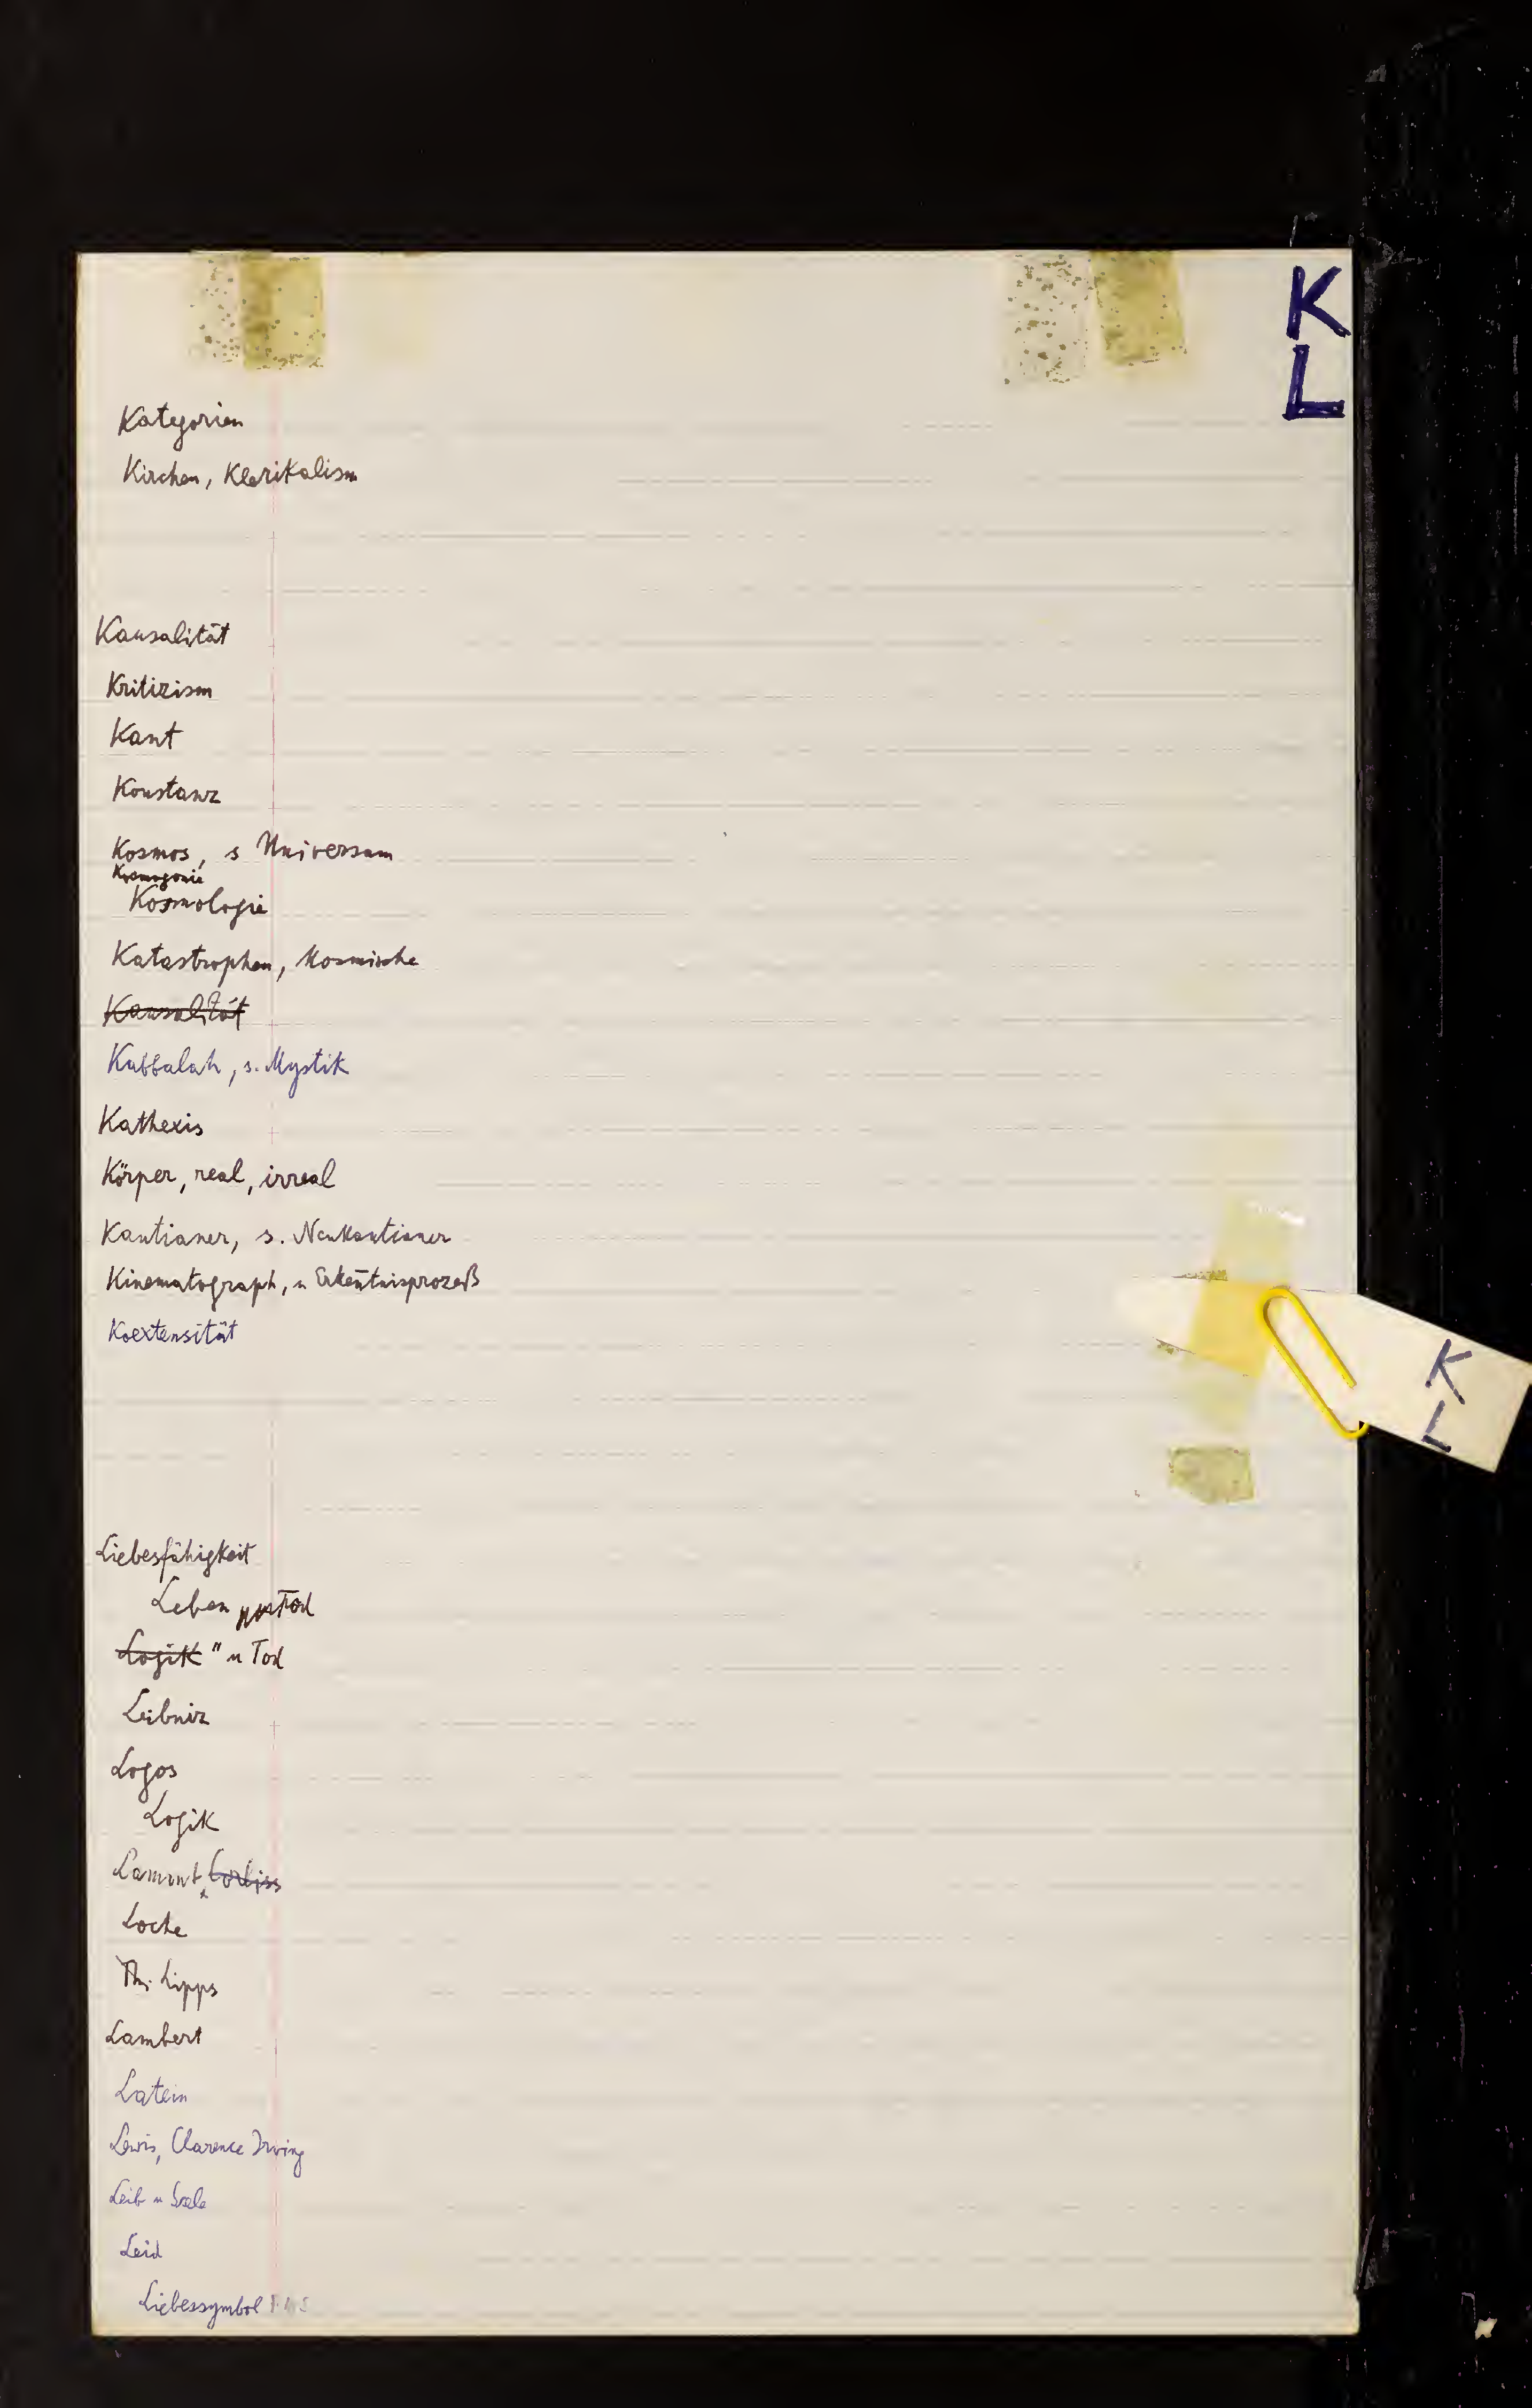 K
L
Kategorien
Kirchen, Klerikalism
Kausalität
Kritizism
Kant
Konstanz
Kosmos, s Universum
Kosmogonie
Kosmologie
Katastrophen, kosmische
Kausalität
Kabbalah, s. Mystik
Kathexis
Körper, real, irreal
Kantianer, s. Neukantianer
Kinematograph, u Erkent̄nisprozeß
Koextensität
K
L
Liebesfähigkeit
Leben post Tod
Logik " u Tod
Leibniz
Logos
Logik
Lamont, Corliss
Locke
Th. Lipps
Lambert
Latein
Lewis, Clarence Irving
Leib u Seele
Leid
Liebessymbol